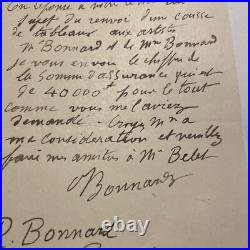 En réponse à votre le
sujet du renvoi d'une caisse
de tableaux aux artistes
Mr Bonnard et de Mme Bonnard
je vous envoie le chiffre de
la somme d'assurance qui est
de 40000 f pour le tout
comme vous me l'aviez
demandé - Croyez Mr à
ma considération et veuillez
faire mes amitiés à Mr Belet
Bonnard
P. Bonnard